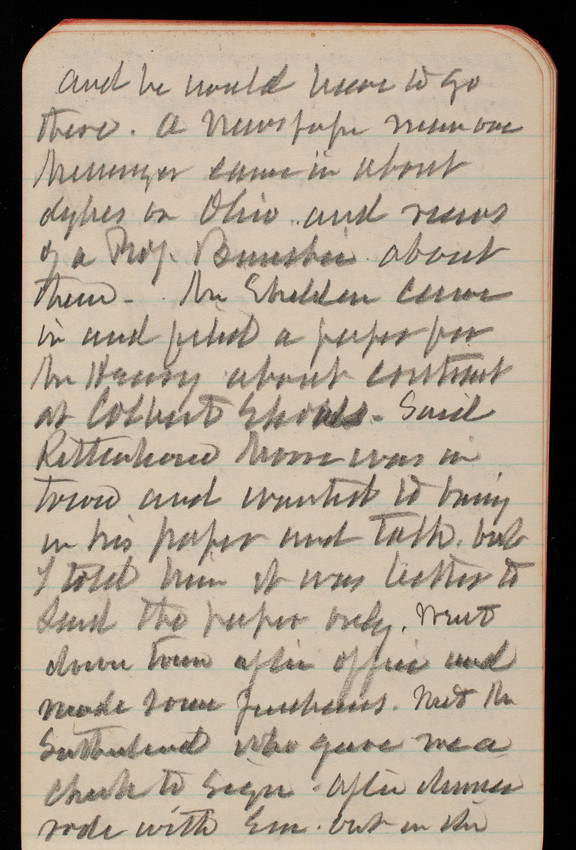 and he would have to go
there. A Newspaper man one
Messenger came in about
dykes on Ohio and views
of a Prof. about
them - Mr Sheldon came
in and filed a paper for
Mr Henry about contract
at Colbert Shoals - Said
Rittenhouse Moore was in
town and wanted to bring
in his paper and talk. but
I told him it was better to
send the paper only. Went
down town after office and
made some purchases. Met Mr
Sutherland who gave me a
check to sign. After dinner
rode with Em. out in the